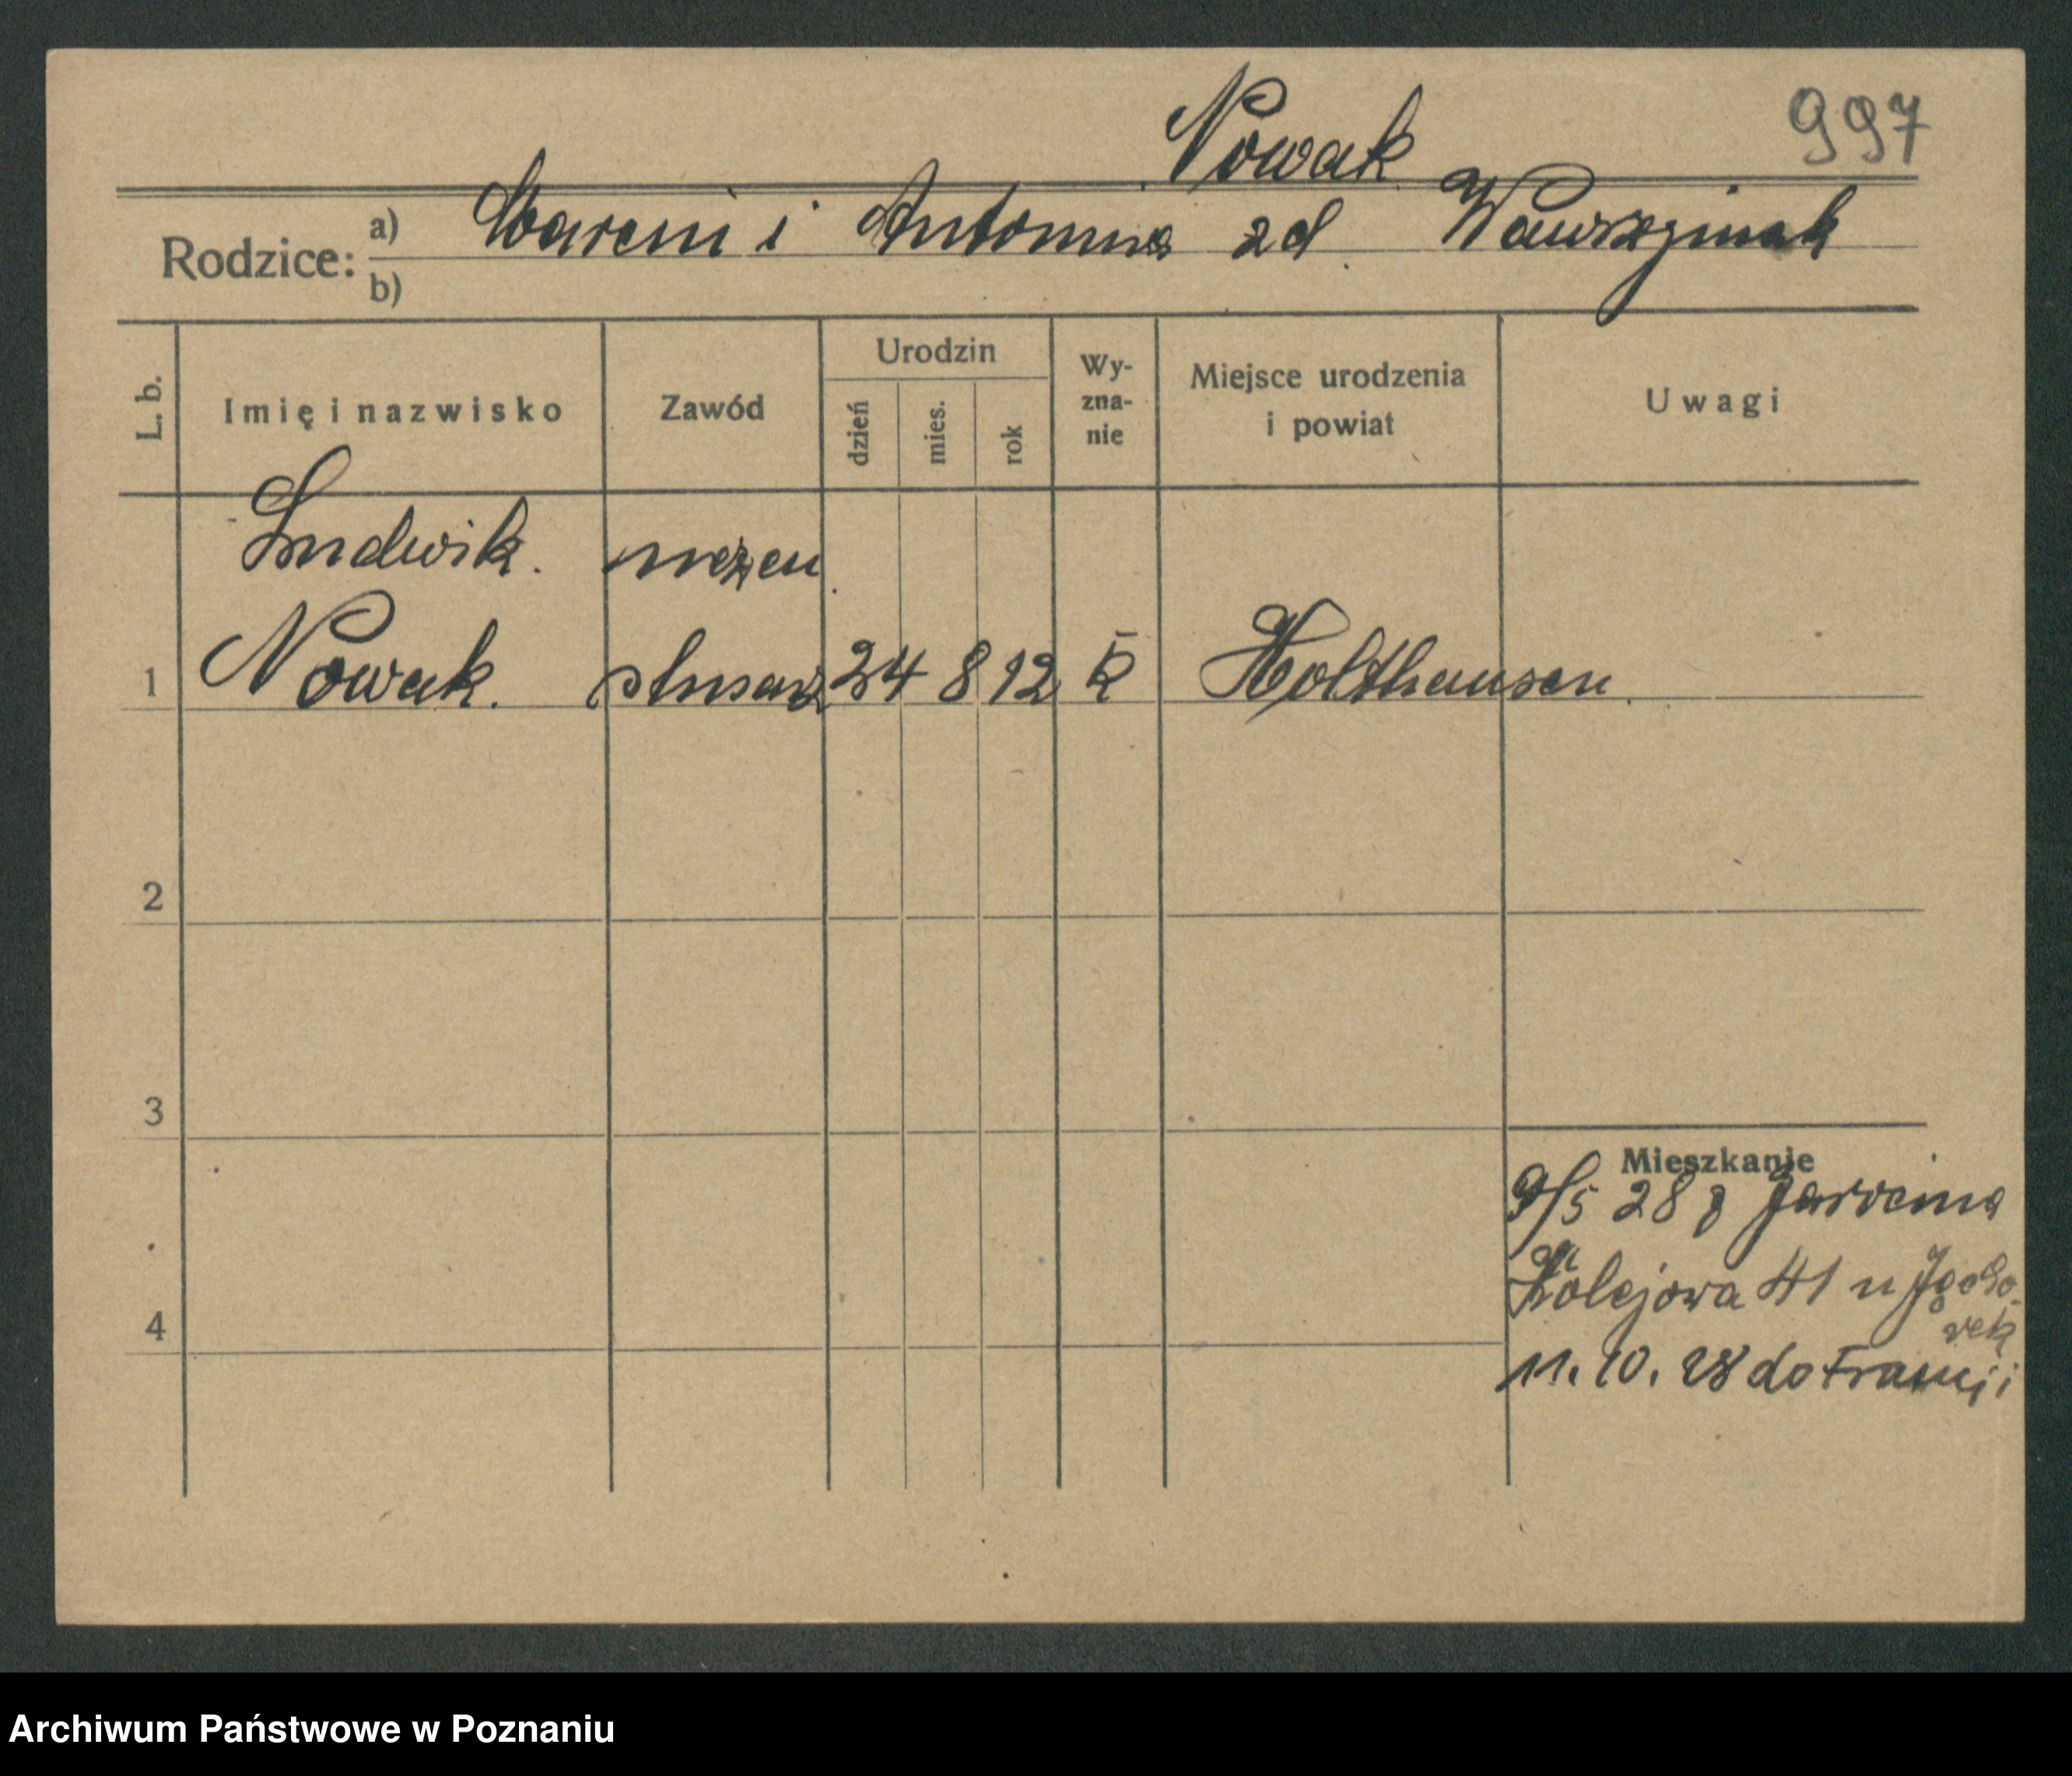 Nowak
997
Rodzice: a) Marcin i Antonina zd. Wawrzyniak
b)
L. b.
Imię i nazwisko
Zawód
Urodzin
dzień
mies.
rok
Wy-
zna-
nie
Miejsce urodzenia
i powiat
Uwagi
Ludwik. uczeń
1 Nowak. ślusarz 24 8 12 k Holthausen.
2
3
Mieszkanie
9/5 28 z Jarocina
Kolejowa 41 u
4
11. 10. 28 do Francji
Archiwum Państwowe w Poznaniu